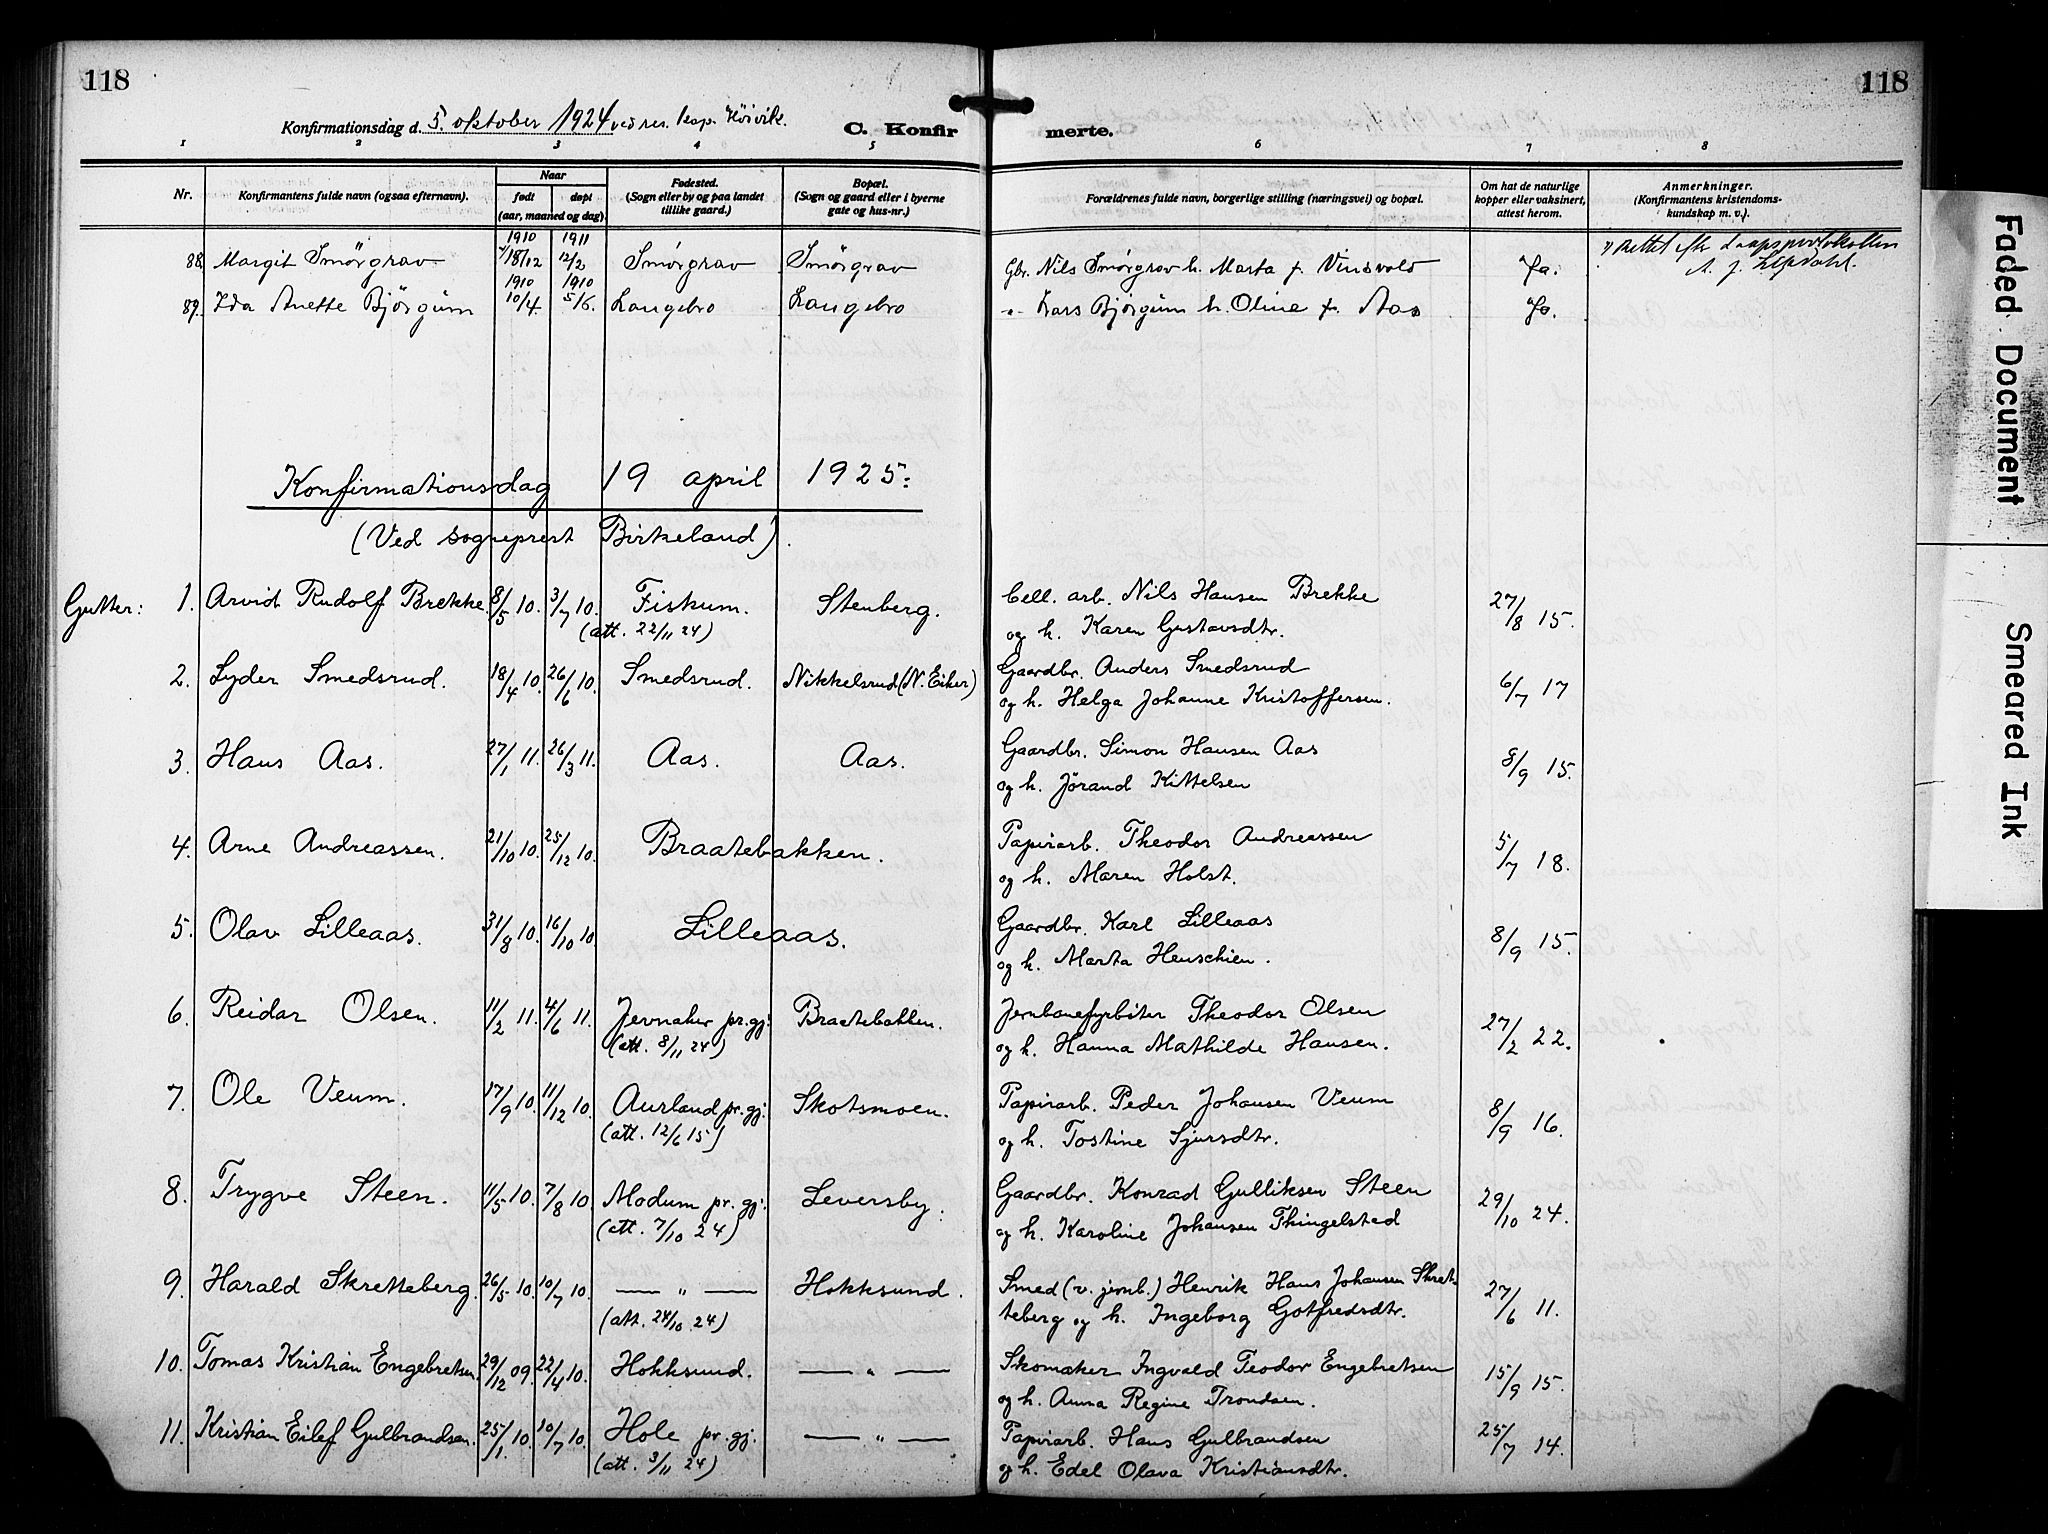 118
118
Konfirmationsdag d. 5. oktober 1924 ved res. kap. Höivik.
C. Konfir
merte.
1 2 3 4 5 6 7 8
Nr.
Konfirmantens fulde navn (ogsaa efternavn).
Naar
født
døpt
(aar, maaned og dag).
Fødested.
(Sogn eller by og paa landet
tillike gaard.)
Bopæl.
(Sogn og gaard eller i byerne
gate og hus-nr.)
Forældrenes fulde navn, borgerlige stilling (næringsvei) og bopæl.
Om hat de naturlige
kopper eller vaksinert,
attest herom.
Anmerkninger.
(Konfirmantens kristendoms-
kundskap m. v.).
1910 1911
88. Margit Smörgrav 18/12 12/2 Smörgrav Smörgrav Gbr. Nils Smörgrav h. Marta f. Vinsvold Ja. Rettet efter daapsprotokollen
1910 1910
89. Ida Anette Björgum 10/4 5/6 Langebro Langebro " Lars Björgum h. Oline f. Aas Ja.
Konfirmationsdag 19 april 1925.
(Ved sogneprest Birkeland).
Gutter: 1. Arvid Rudolf Brekke. 8/5 10. 3/7 10. Fiskum. Stenberg. Cell. arb. Nils Hansen Brekke 27/8 15.
(att. 22/11 24) og h. Karen Gustavsdtr.
2. Lyder Smedsrud. 18/4 10. 26/6 10. Smedsrud. Nikkelsrud (N. Eiker) Gaardbr. Anders Smedsrud 6/7 17
og h. Helga Johanne Kristoffersen.
3. Hans Aas. 27/1 11. 26/3 11. Aas. Aas. Gaardbr. Simon Hansen Aas 8/9 15.
og h. Jörand Kittelsen
4. Arne Andreassen. 21/10 10. 25/12 10. Braatebakken. Papirarb. Theodor Andreassen 5/7 18.
og h. Maren Holst.
5. Olav Lilleaas. 31/8 10. 16/10 10. Lilleaas. Gaardbr. Karl Lilleaas 8/9 15.
og h. Marta Henschien.
6. Reidar Olsen. 11/2 11. 4/6 11. Jevnaker pr.gj. Braatebakken. Jernbanefyrböter Theodor Olsen 27/2 22.
(att. 8/11 24) og h. Hanna Mathilde Hansen.
7. Ole Veum. 17/9 10. 11/12 10. Aurland pr.gj. Skotsmoen. Papirarb. Peder Johansen Veum 8/9 16.
(att. 12/6 15) og h. Tostine Sjursdtr.
8. Trygve Steen. 11/5 10. 7/8 10. Modum pr.gj. Leversby. Gaardbr. Konrad Gulliksen Steen 29/10 24.
(att. 7/10 24) og h. Karoline Johansen Thingelstad
9. Harald Skretteberg. 26/5 10. 10/7 10. — " — Hokksund. Smed (v. jernb.) Henrik Hans Johansen Skret- 27/6 11.
(att. 24/10 24) teberg og h. Ingeborg Gotfredsdtr.
10. Tomas Kristian Engebretsen. 29/12 09. 22/4 10. Hokksund. — " — Skomaker Ingvald Teodor Engebretsen 15/9 15.
og h. Anna Regine Trondsen.
11. Kristian Eilef Gulbrandsen. 25/1 10. 10/7 10. Hole pr.gj. — " — Papirarb. Hans Gulbrandsen 25/7 14.
(att. 3/11 24) og h. Edel Olava Kristiansdtr.
Faded Document
Smeared Ink